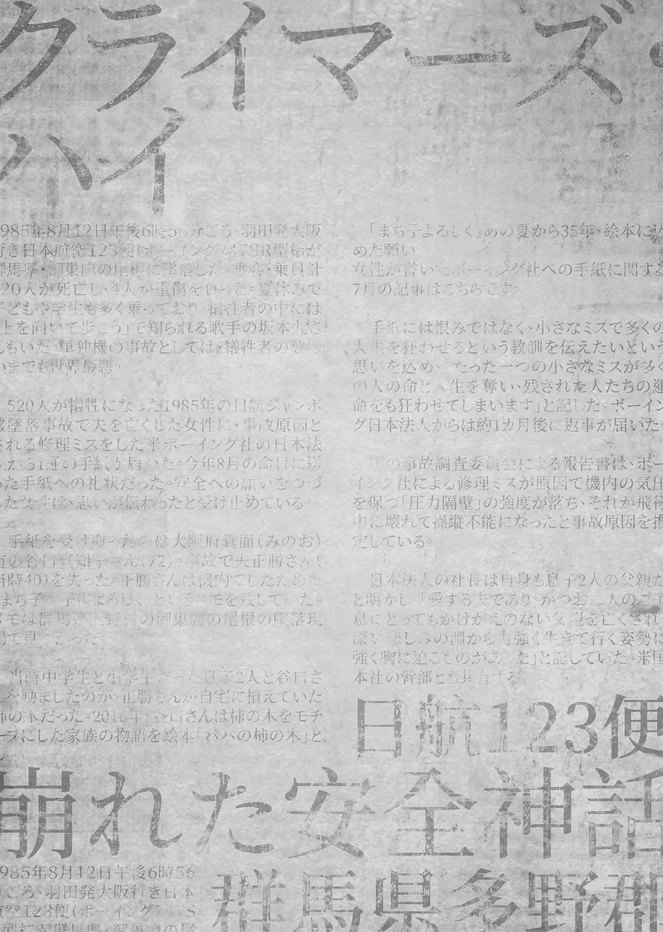 クライマーズ・
ハイ
985年8月12日午後6時56分ごろ、羽田発大阪
行き日本航空123便(ボーイング747SR型機)が
群馬県・御巣鷹の尾根に墜落した。乗客・乗員計
20人が死亡し、4人が重傷を負った。夏休みで
子どもや学生も多く乗っており、犠牲者の中には
上を向いて歩こう」で知られる歌手の坂本九さ
んもいた。単独機の事故としては、犠牲者の数
いまでも世界最悪。
520人が犠牲になった1985年の日航ジャンボ
機墜落事故で夫を亡くした女性に、事故原因と
される修理ミスをした米ボーイング社の日本法
から1通の手紙が届いた。今年8月の命日に送
った手紙への礼状だった。安全への願いをつづ
った女性は、思いが伝わったと受け止めている。
手紙を受け取ったのは大阪府箕面(みのお)
市の谷口真知子さん(72)。事故で夫正勝さん(
当時40)を失った。正勝さんは機内でしたためた
まち子 子供よろしく」というメモを残していた。
メモは群馬県上野村の御巣鷹の尾根の墜落現
場で見つかった。
当時中学生と小学生だった息子2人と谷口さ
を励ましたのが、正勝さんが自宅に植えていた
柿の木だった。2016年、谷口さんは柿の木をモチ
ーフにした家族の物語を絵本「パパの柿の木」と
「まち子よろしく」あの夏から35年、絵本に込
めた願い
女性が書いたボーイング社への手紙に関する
7月の記事はこちらです。
手紙には恨みではなく、小さなミスで多くの
人生を狂わせるという教訓を伝えたいという
思いを込め、「たった一つの小さなミスが多く
の人の命と人生を奪い、残された人たちの運
命をも狂わせてしまいます」と記した。ボーイン
グ日本法人からは約1カ月後に返事が届いた。
国の事故調査委員会による報告書は、ボー
イング社による修理ミスが原因で機内の気圧
を保つ「圧力隔壁」の強度が落ち、それが飛行
中に壊れて操縦不能になったと事故原因を推
定している。
日本法人の社長は自身も息子2人の父親だ
と明かし、「愛する夫であり、かつお二人のご子
息にとってもかけがえのない父親を亡くされ、
深い悲しみの淵から力強く生きて行く姿勢に
強く胸に迫るものがあった」と記していた。米国
本社の幹部とも共有する
日航123便
崩れた安全神話
985年8月12日午後6時56
ごろ、羽田発大阪行き日本
航空123便(ボーイング747S
群馬県多野郡